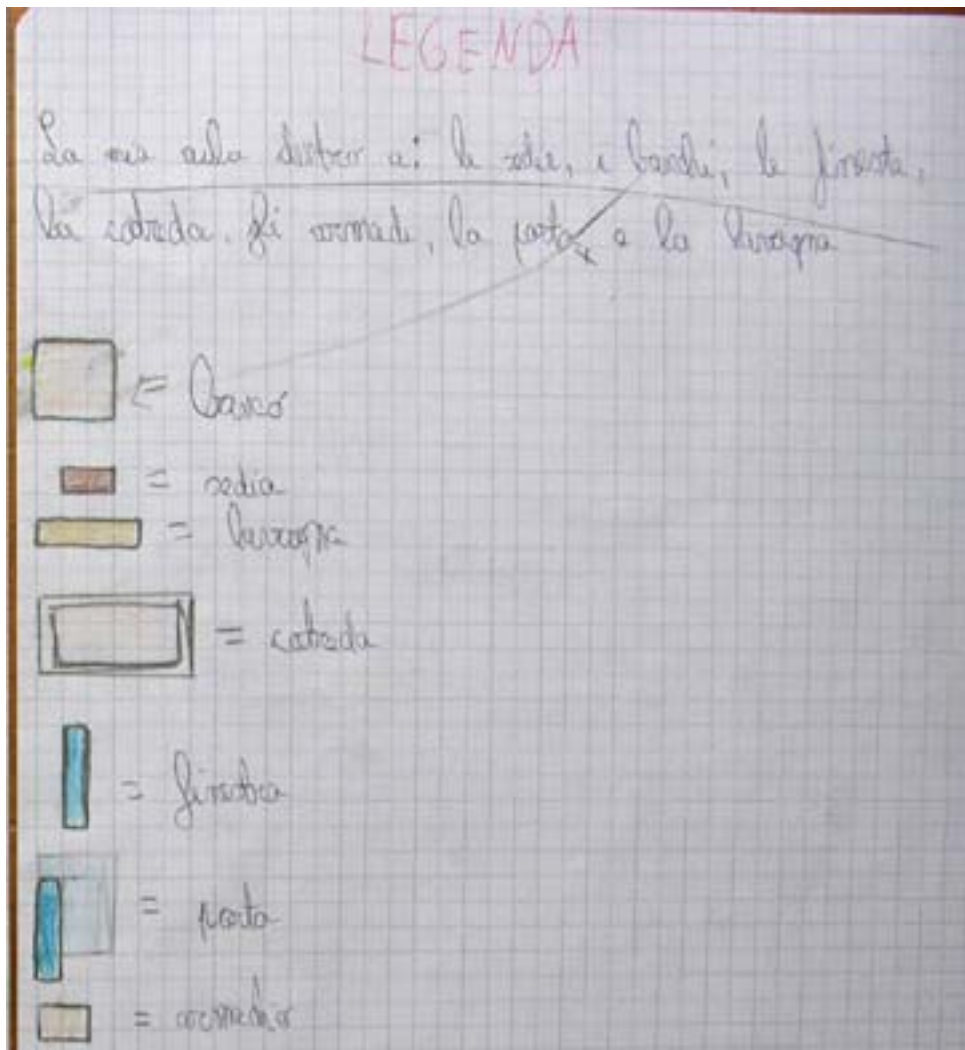 LEGENDA
La mia aula dentro a: le sedie, i banchi, le finestra,
la catreda, gli armadi, la porta e la lavagna
= banco
= sedia
= lavagna
= catreda
= finestra
= porta
= armadio